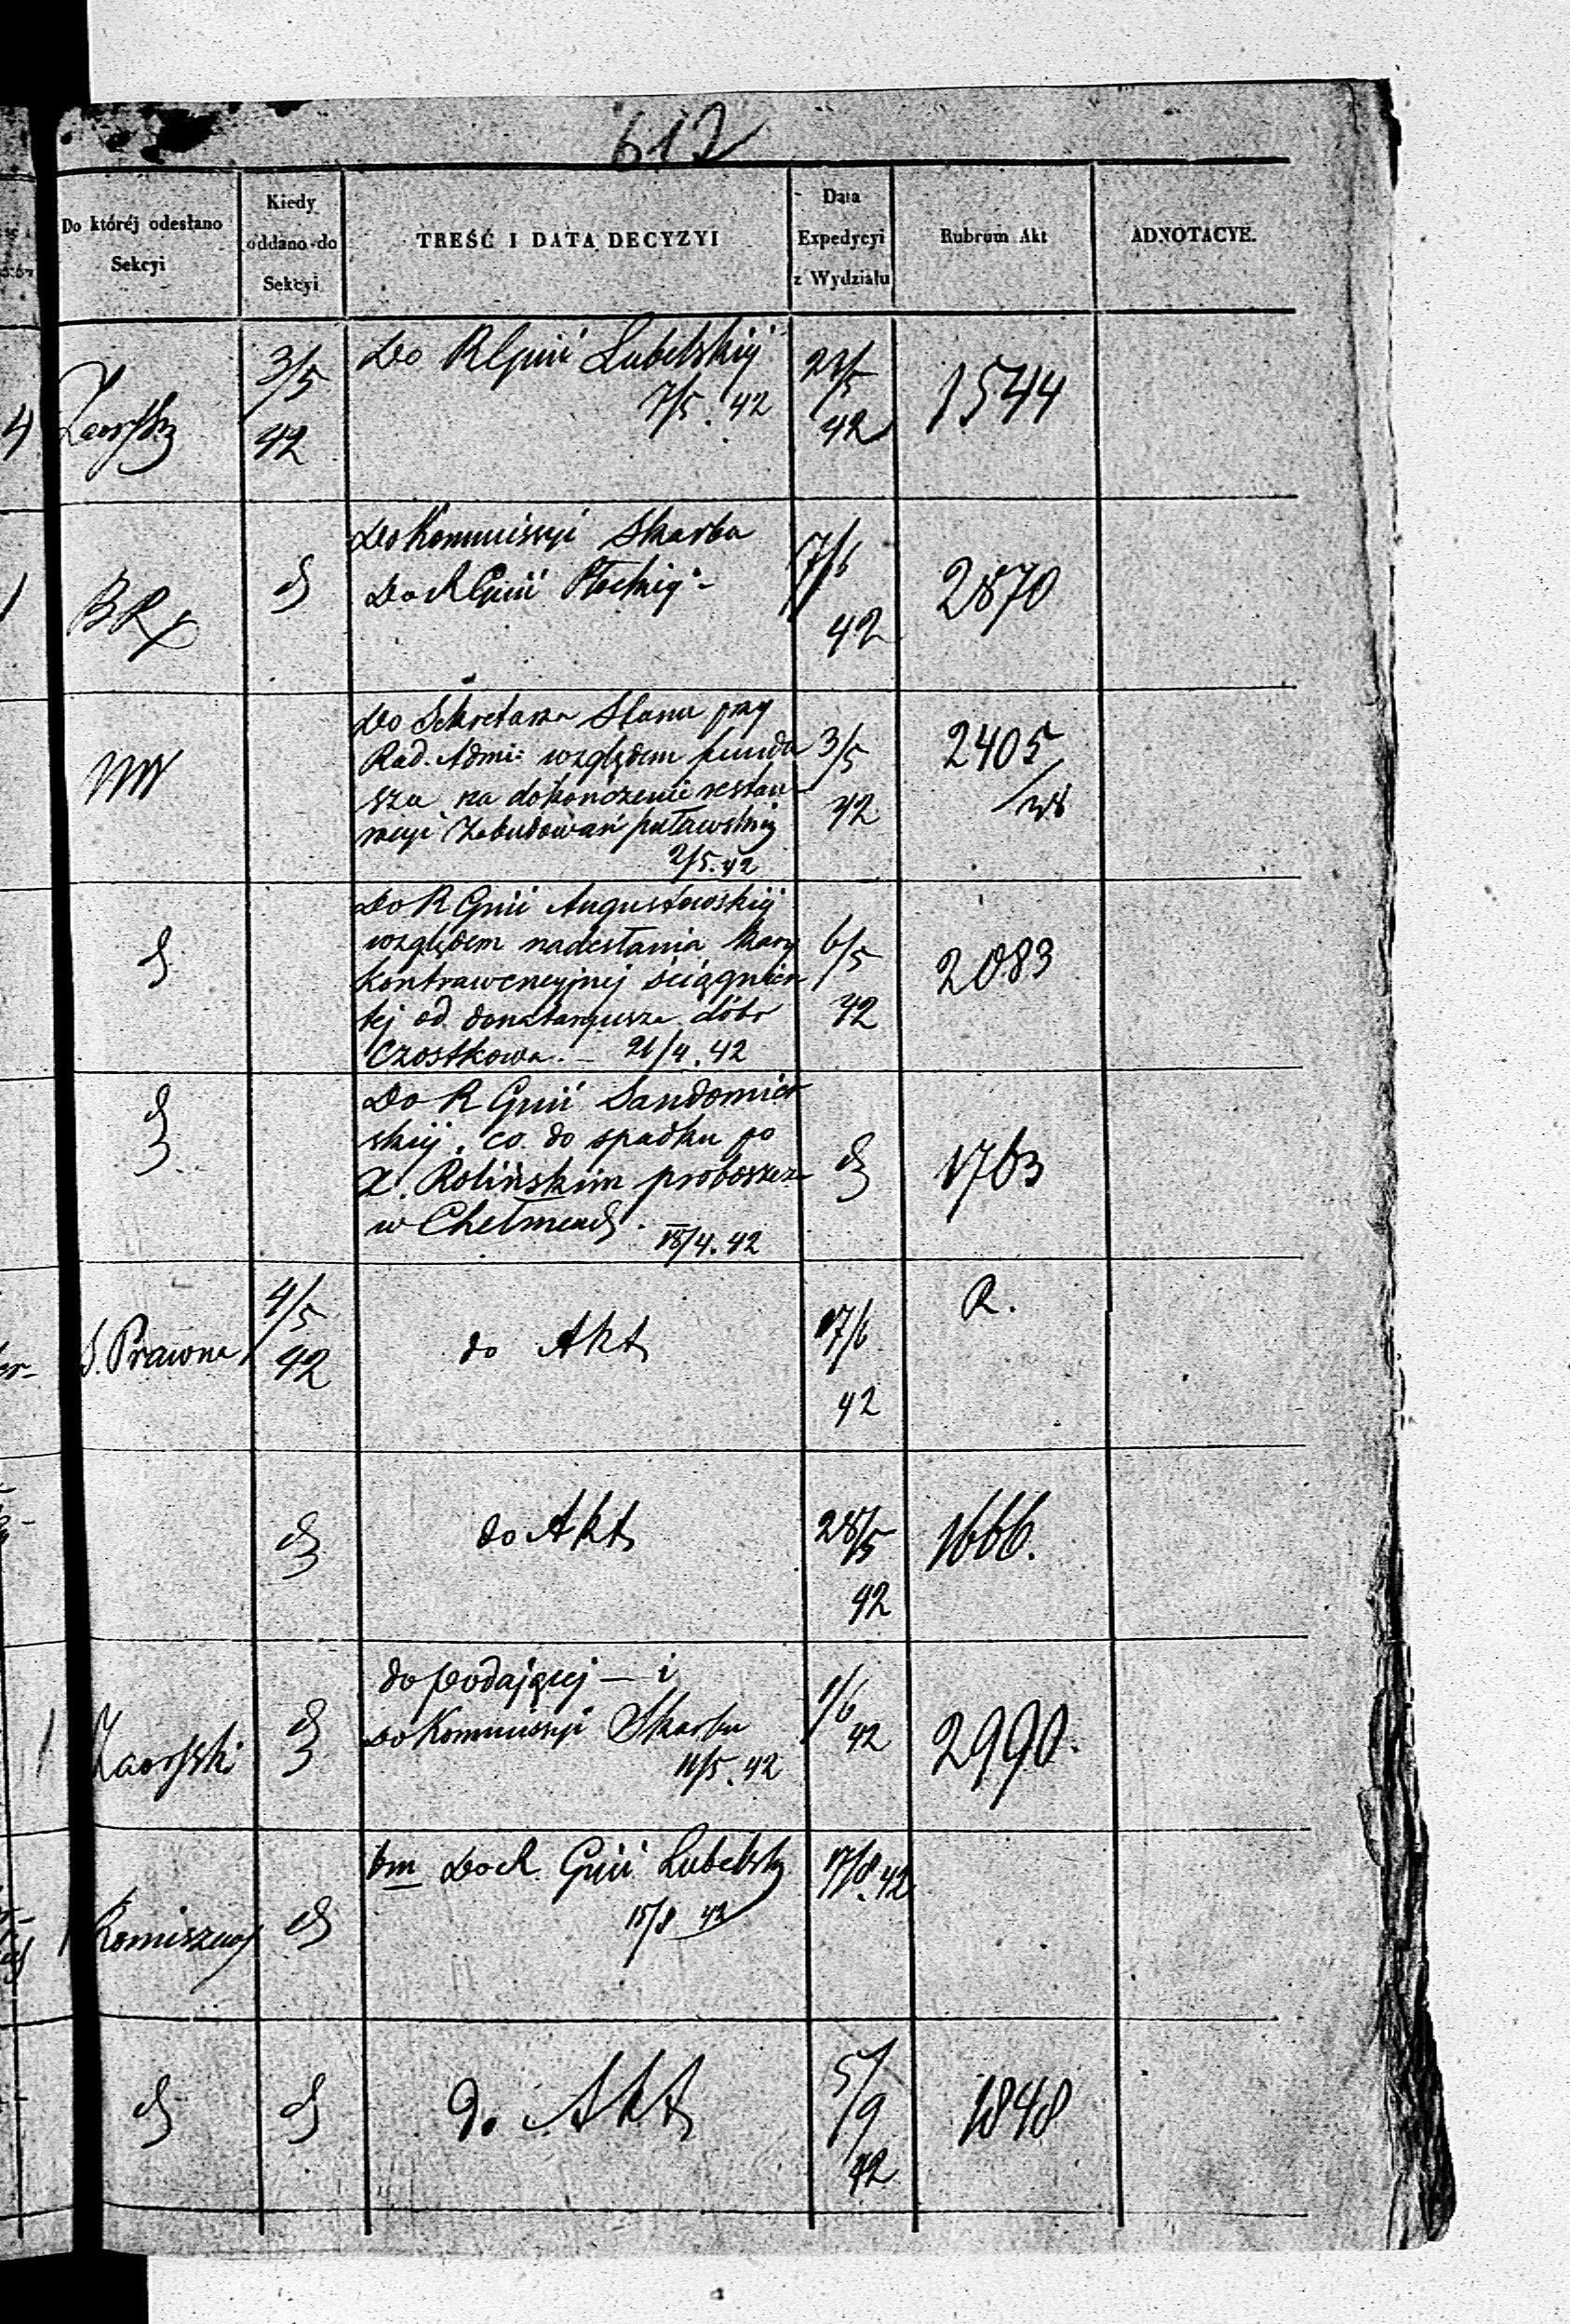 612
Do któréj odesłano
Sekcyi
Kiedy
oddano do
Sekcyi
TREŚĆ I DATA DECYZYI
Data
Expedycyi
z Wydziału
Rubrum Akt
ADNOTACYE.
3/5
42
Do RGnii Lubelskiéj
7/5. 42
42
1544
Do Kommissyi Skarbu
Do RGnii Płockiéj
17/6
42
2870
Do Sekretarza Stanu przy
Rad. Admi: względem fundu
szu na dokończenie restau-
racyi Zabudowań puławskiéj
2/5. 42
3/5
42
2405
Do R Gnii Augustowskiéj
względem nadesłania kary
kontrawencyjnej ściągnien
tej od donataryusza dóbr
Czostkowa. — 21/4. 42
6/5
42
2083
Do R Gnii Sandomier
skiéj, co do spadku po
X. Rolińskim proboszczu
w Chełmcach.
18/4. 42
1763
S. Prawna
4/5
42
do Akt
17/6
42
R.
do Akt
28/5
42
1666.
Zaorski
do podającej — i
Do Kommissyi Skarbu
11/5. 42
1/6
42
2990.
bm Do R. Gnii Lubelskiéj
15/8 42
17/8. 42
do Akt
5/9
42
1848